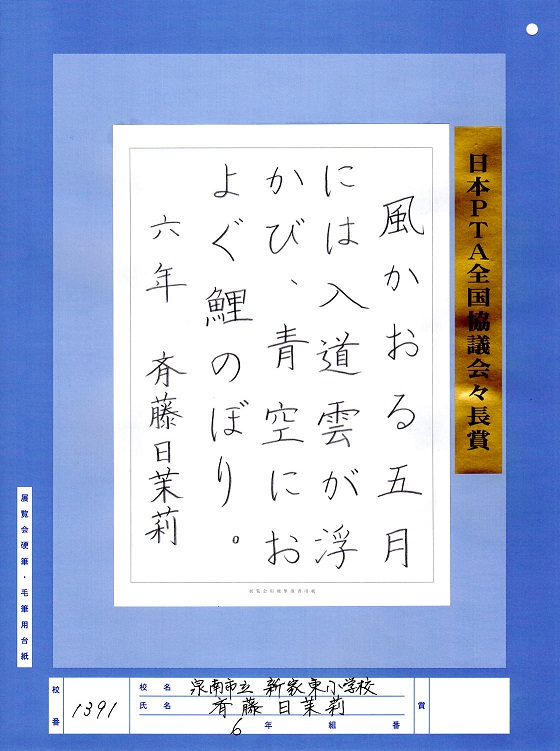 日本PTA全国協議会々長賞
風かおる五月
には入道雲が浮
かび、青空にお
よぐ鯉のぼり。
六年 斉藤日茉莉
展覧会硬筆・毛筆用台紙
校番 1391
校名 泉南市立 新家東小学校
氏名 斉藤日茉莉
6年 組 番
賞